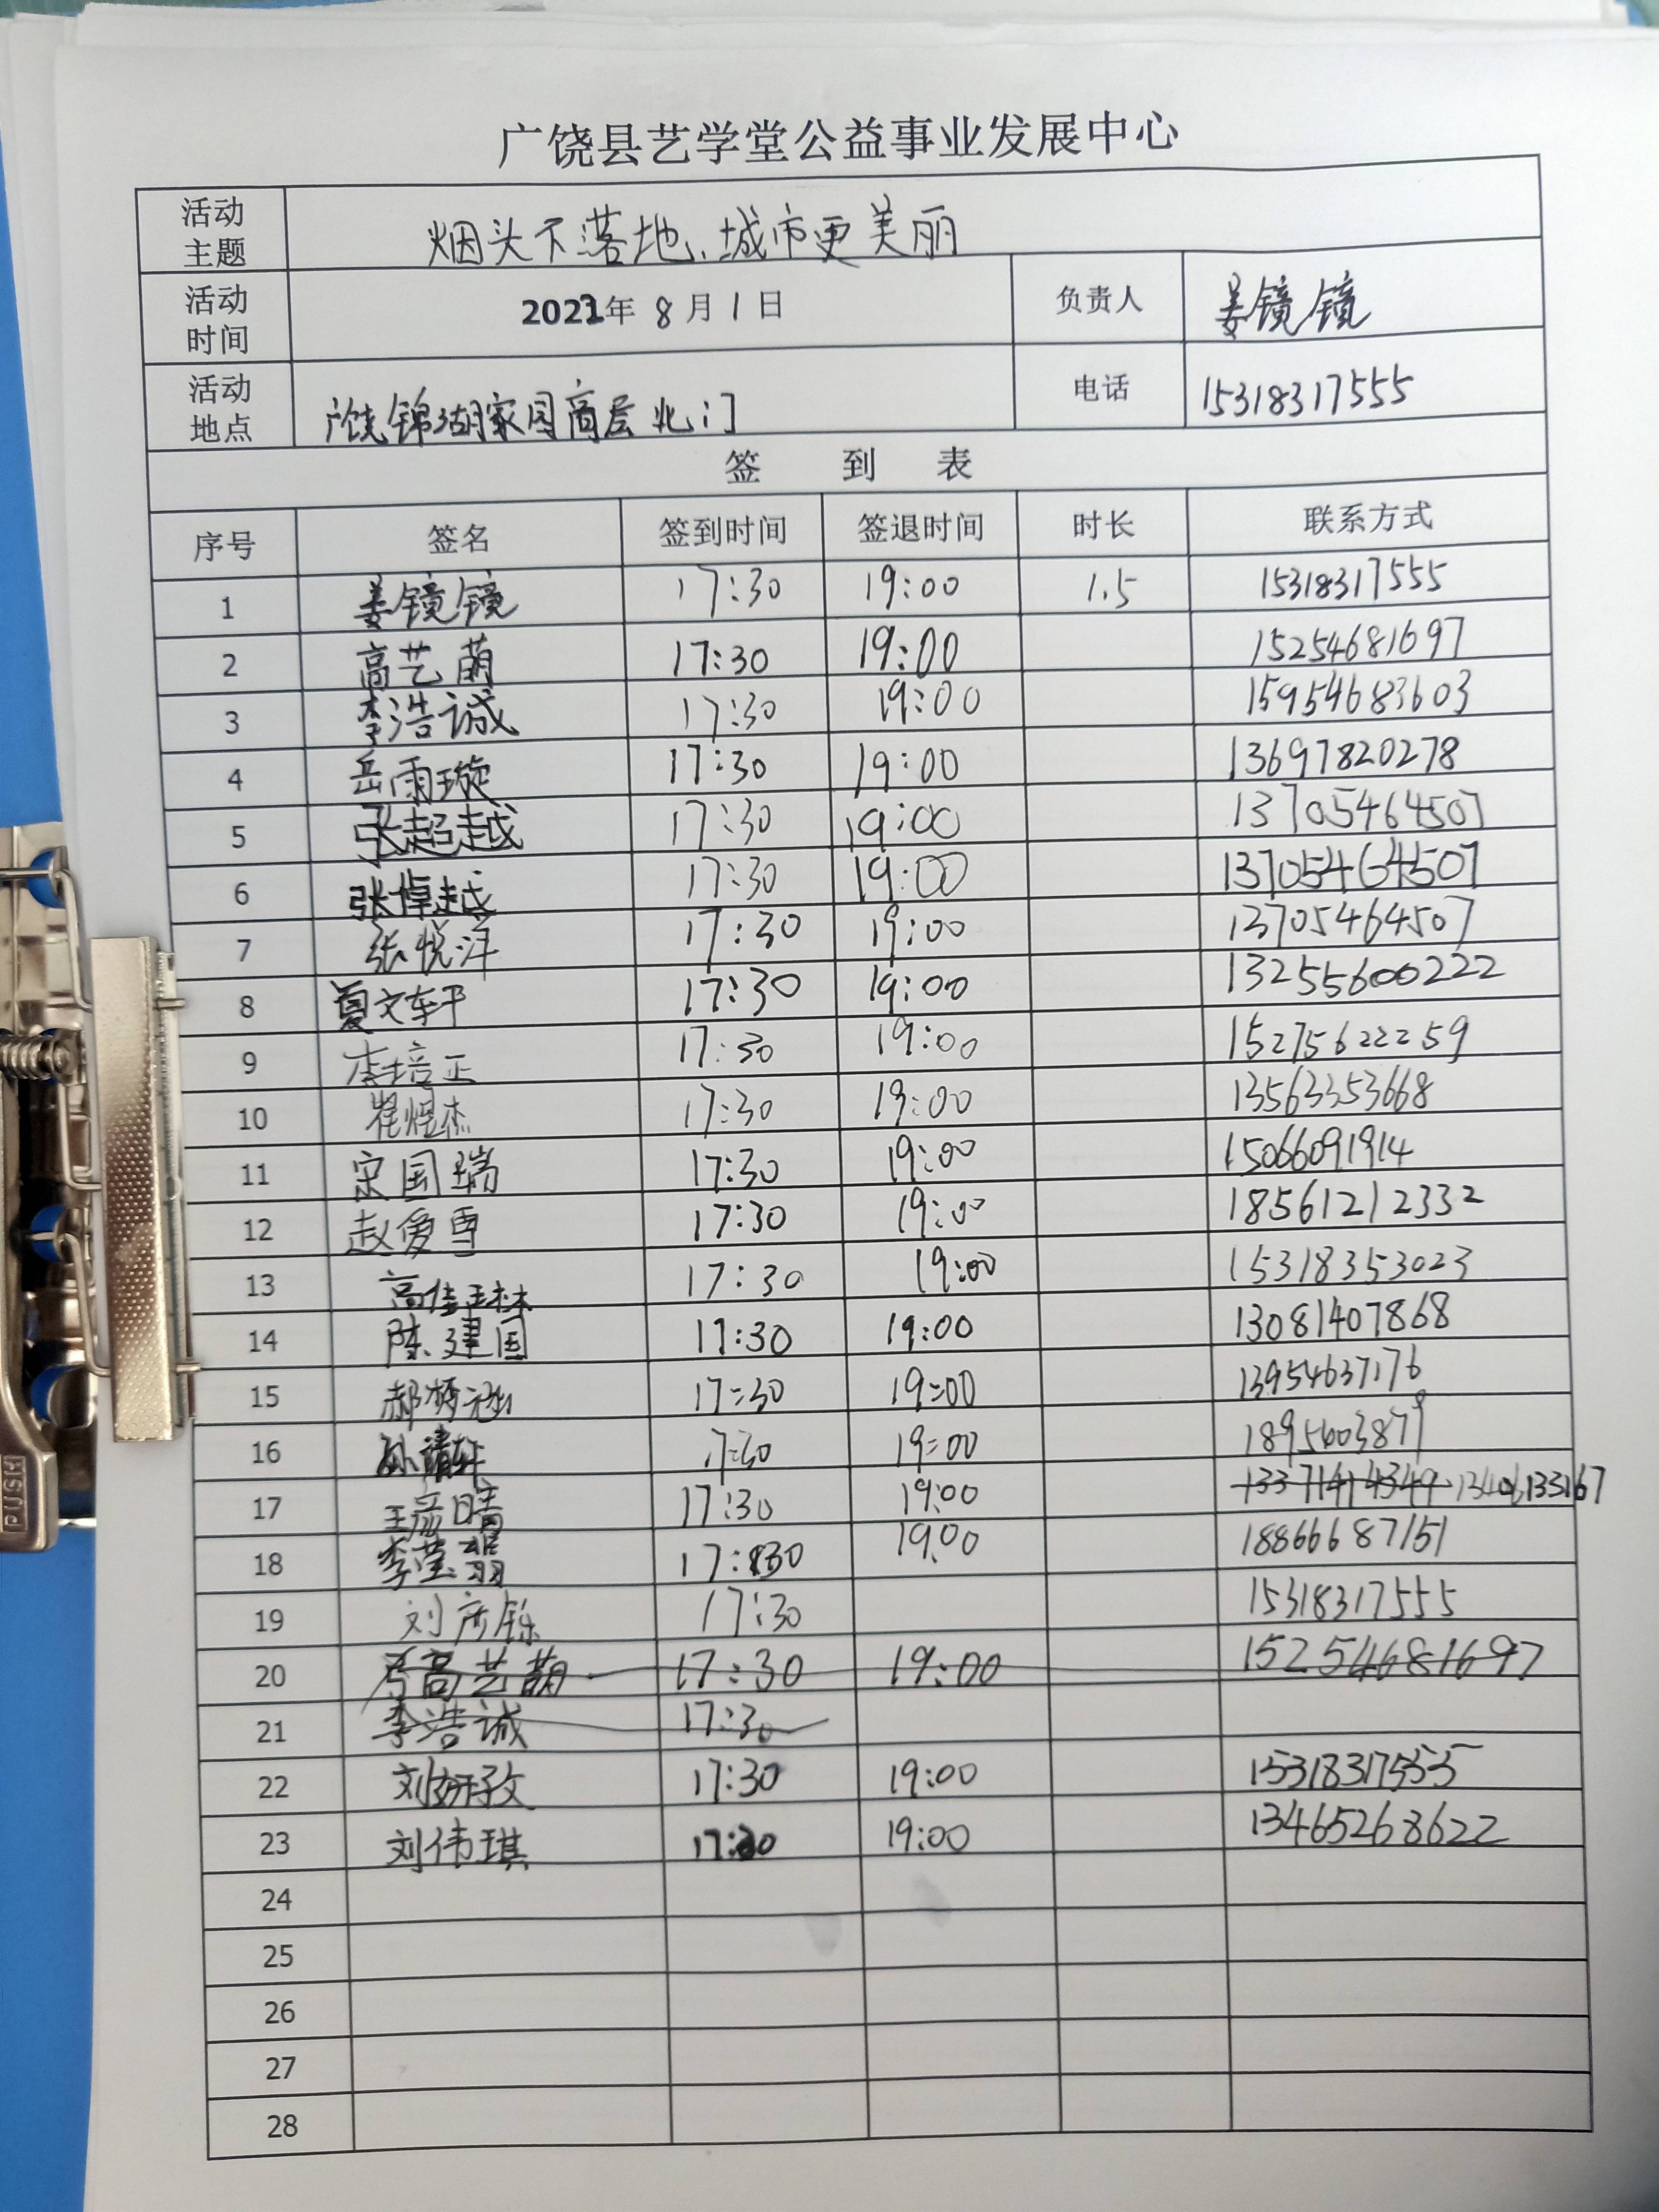 广饶县艺学堂公益事业发展中心
活动主题 烟头不落地、城市更美丽
活动时间 2022年 8月1日 负责人 姜镜镜
活动地点 广饶锦湖家园高层北门 电话 15318317555
签 到 表
序号 签名 签到时间 签退时间 时长 联系方式
1 姜镜镜 17:30 19:00 1.5 15318317555
2 高艺萌 17:30 19:00 15254681697
3 李浩诚 17:30 19:00 15954683603
4 岳雨璇 17:30 19:00 13697820278
5 张超越 17:30 19:00 13705464507
6 张悼越 17:30 19:00 13705464507
7 张悦洋 17:30 19:00 13705464507
8 夏文轩 17:30 19:00 13255600222
9 李培正 17:30 19:00 15275622259
10 崔煜杰 17:30 19:00 13563353668
11 宋国瑞 17:30 19:00 15066091914
12 赵爱雪 17:30 19:00 18561212332
13 高佳琳 17:30 19:00 15318353023
14 陈建国 17:30 19:00 13081407868
15 郝梦涵 17:30 19:00 13954637176
16 17:30 19:00
17 17:30 19:00
18 17:30 19:00 18866687151
19 刘彦铄 17:30 15318317555
20 高艺萌 17:30 19:00 15254681697
21 李浩诚 17:30
22 刘妍孜 17:30 19:00 15318317555
23 刘伟琪 17:30 19:00 13465268622
24
25
26
27
28
PUSH